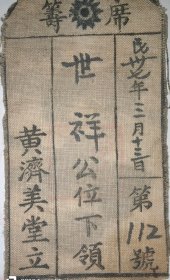 席籌
民卅七年三月十三日
第112號
世祥公位下領
黃濟美堂立